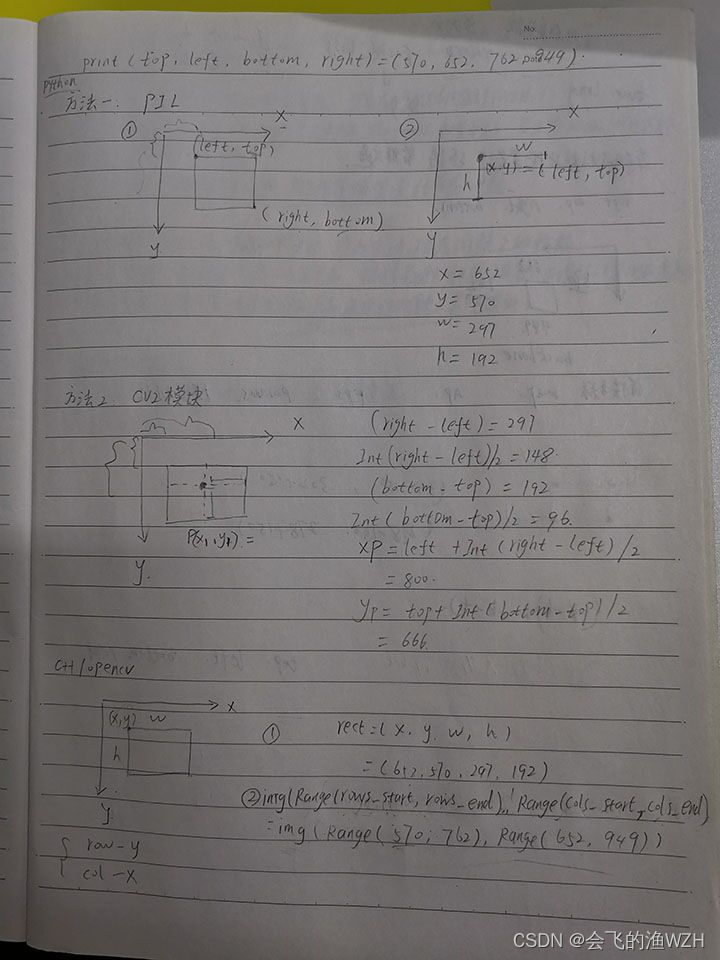 No.
print (top, left, bottom, right) = (570, 652, 762, 949).
Python
方法一: PIL
① X
(left, top)
(right, bottom)
y
② X
w
(x,y) = (left, top)
h
y
x = 652
y = 570
w = 297
h = 192
方法2: CV2模块
X
P(x1, y1) =
y.
(right - left) = 297
Int(right - left)/2 = 148.
(bottom - top) = 192
Int(bottom - top)/2 = 96.
xp = left + Int (right - left) /2
= 800.
yp = top + Int (bottom - top) /2
= 666.
C++/opencv
X
(x,y) w
h
y
① rect = (x, y, w, h)
= (652, 570, 297, 192)
② img(Range(rows_start, rows_end), Range(cols_start, cols_end)
= img (Range(570, 762), Range(652, 949))
{ row - y
col - x
CSDN @会飞的渔WZH